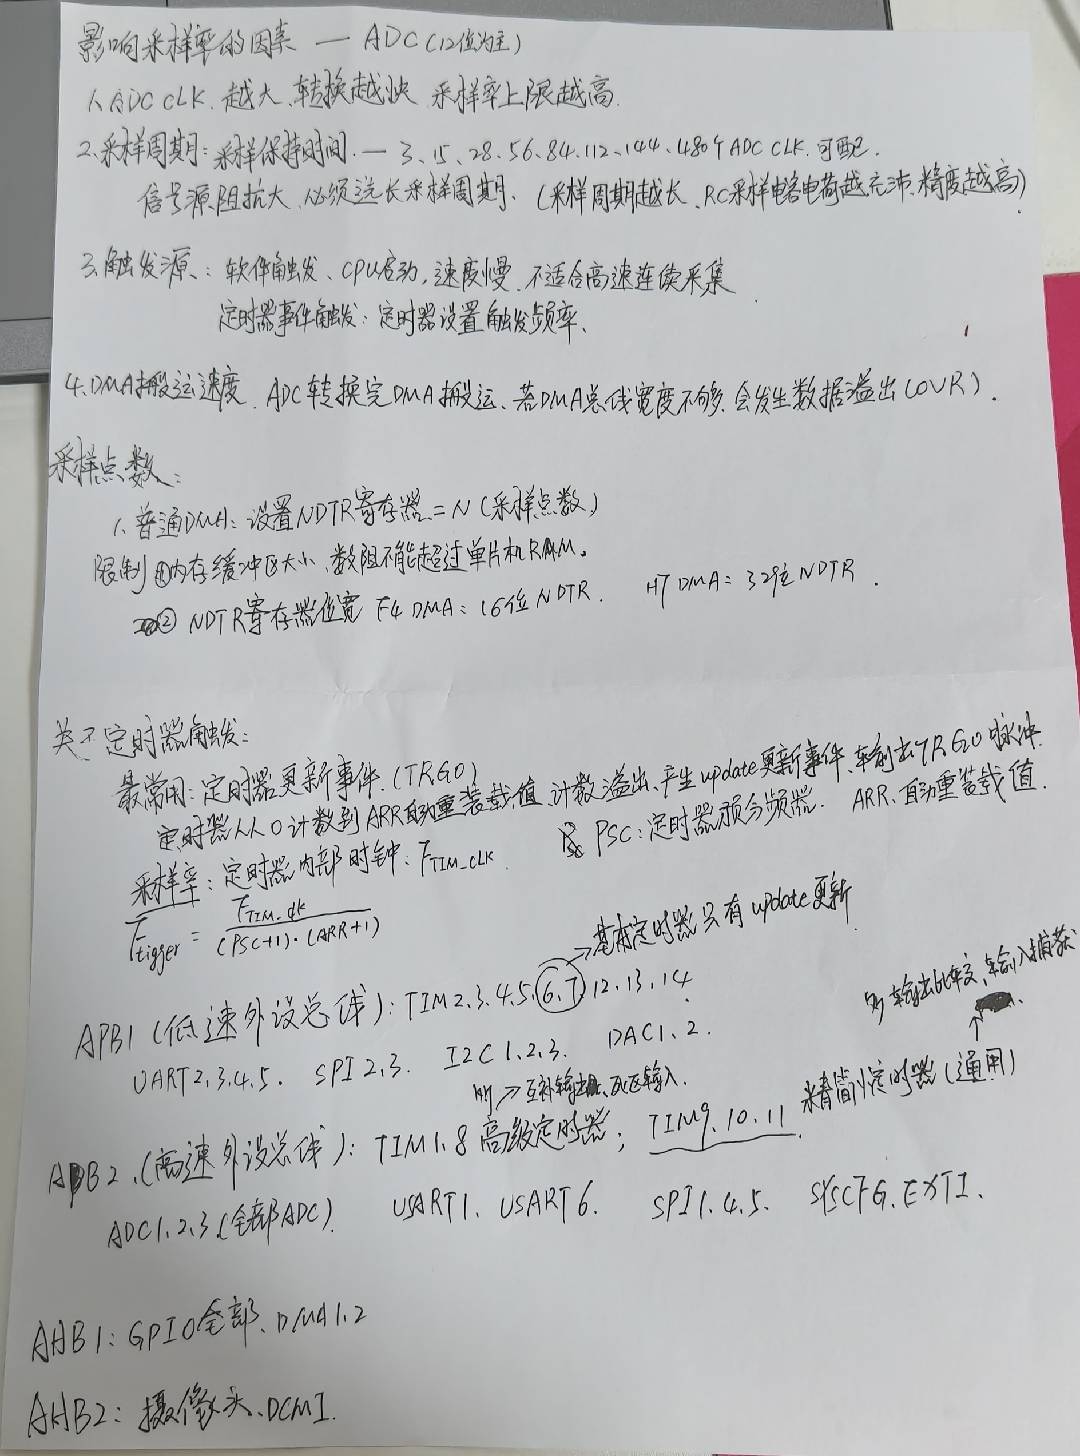 影响采样率的因素 — ADC (12位为主)
1. ADC CLK. 越大、转换越快 采样率上限越高.
2. 采样周期: 采样保持时间. — 3、15、28、56、84、112、144、480个ADC CLK. 可配.
信号源阻抗大、必须选长采样周期、(采样周期越长、RC采样电容电荷越充沛、精度越高)
3. 触发源、: 软件触发、CPU启动, 速度慢、不适合高速连续采集
定时器事件触发: 定时器设置触发频率、
4. DMA搬运速度、ADC转换完DMA搬运、若DMA总线宽度不够、会发生数据溢出(OVR).
采样点数:
1、普通DMA: 设置NDTR寄存器 = N (采样点数)
限制 ①内存缓冲区大小、数阻不能超过单片机RAM。
② NDTR寄存器位宽 F4 DMA: 16位 NDTR. H7 DMA: 32位 NDTR.
关于定时器触发:
最常用: 定时器更新事件. (TRGO)
定时器从0计数到ARR自动重装载值、计数溢出、产生update更新事件、输出TRGO脉冲.
采样率: 定时器内部时钟: F_TIM_CLK. PSC: 定时器预分频器. ARR、自动重装载值.
F_tigger = F_TIM_clk / (PSC+1)·(ARR+1)
→ 基本定时器只有update更新
APB1 (低速外设总线): TIM2.3.4.5.6.7 12.13.14
多 输出比较、输入捕获
UART2.3.4.5. SPI 2.3. I2C 1.2.3. DAC1.2.
→ 互补输出、死区输入.
APB2、(高速外设总线): TIM1.8 高级定时器; TIM9.10.11 精简定时器 (通用)
ADC1.2.3. (全部ADC) USART1、USART6. SPI1.4.5. SYSCFG. EXTI.
AHB1: GPIO全部、DMA1.2
AHB2: 摄像头、DCMI.